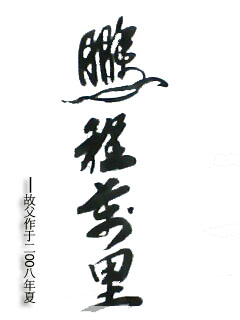 鵬程萬里
—故父作于二00八年夏